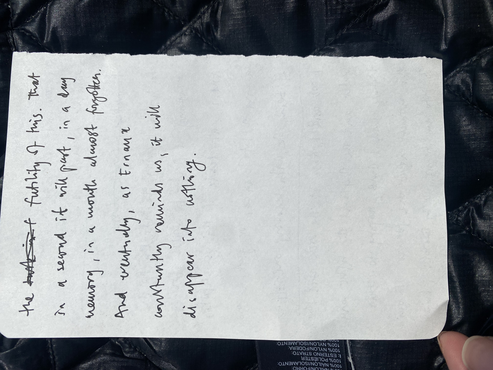 the futility of this. That
in a second it will past, in a day
memory, in a month almost forgotten.
And eventually, as Ernaux
constantly reminds us, it will
disappear into nothing.
100% NYLON/ISOLAMENTO
E ESTINO STRATO
100% POLIESTER
100% NYLON/FODERA
100% NYLON/ISOLAMENTO